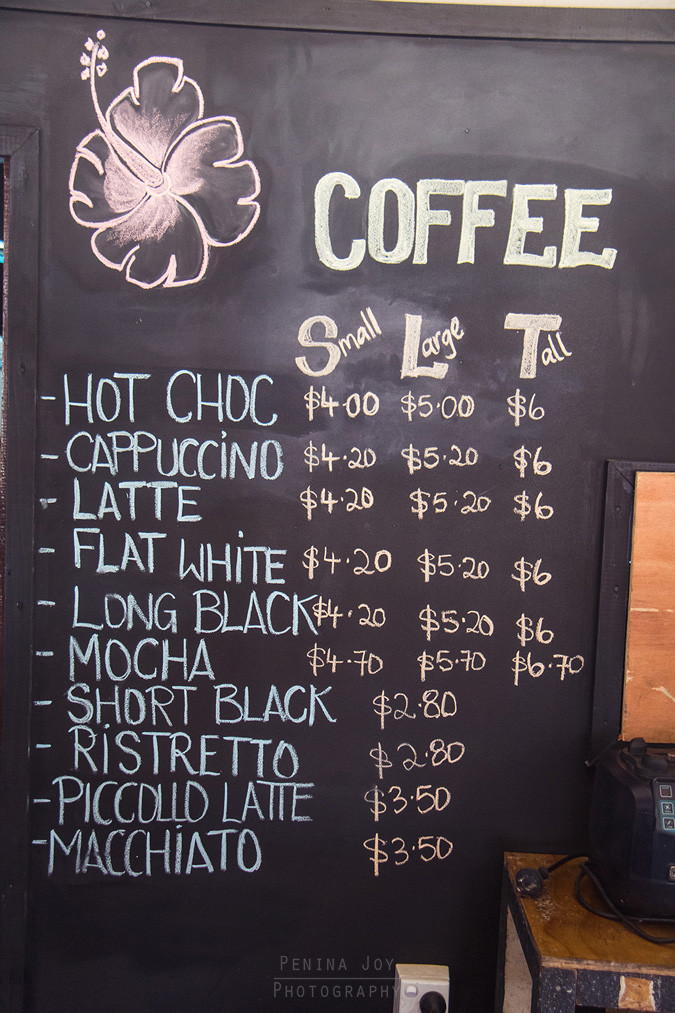 COFFEE
Small Large Tall
-HOT CHOC $4.00 $5.00 $6
-CAPPUCCINO $4.20 $5.20 $6
-LATTE $4.20 $5.20 $6
-FLAT WHITE $4.20 $5.20 $6
-LONG BLACK $4.20 $5.20 $6
-MOCHA $4.70 $5.70 $6.70
-SHORT BLACK $2.80
-RISTRETTO $2.80
-PICCOLLO LATTE $3.50
-MACCHIATO $3.50
PENINA JOY
PHOTOGRAPHY